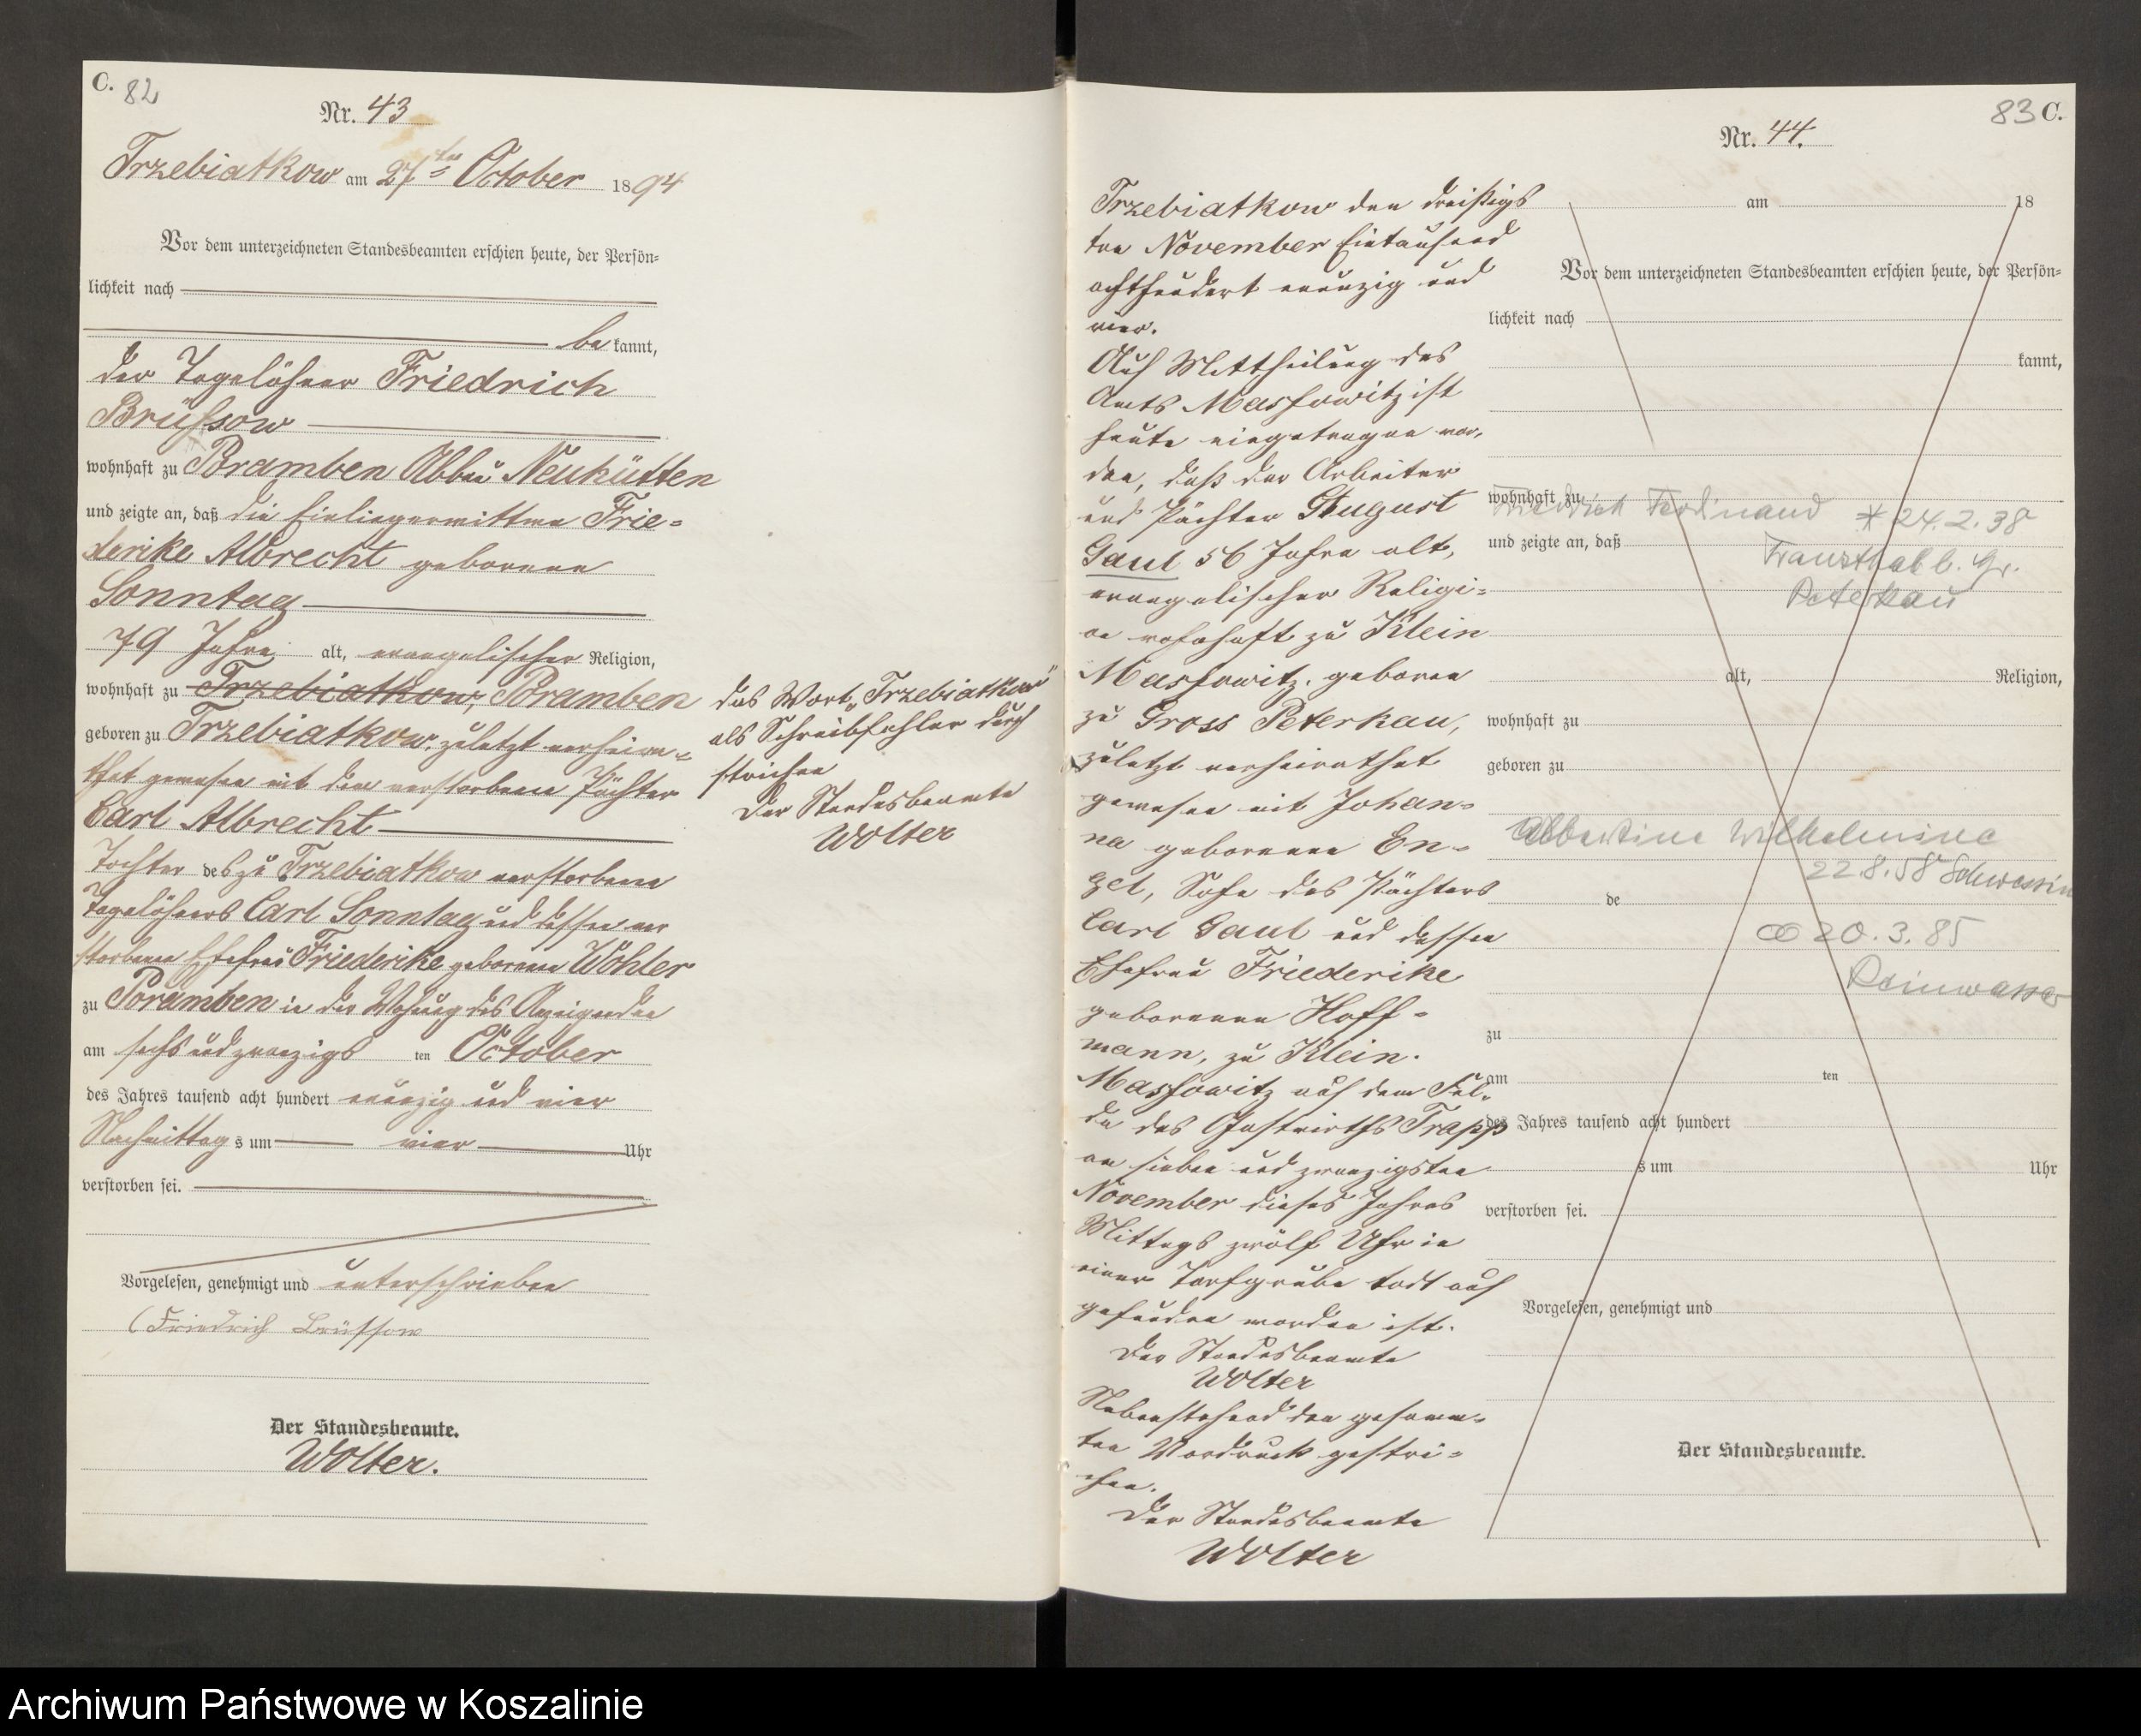 C. 82
Nr. 43
Trzebiatkow am 27ten October 1894
Vor dem unterzeichneten Standesbeamten erschien heute, der Persön-
lichkeit nach
be kannt,
der Tagelöhner Friedrich
Brüssow
wohnhaft zu Poramben Abbau Neuhütten
und zeigte an, daß die Einliegerwittwe Frie-
derike Albrecht geborene
Sonntag
79 Jahre alt, evangelischer Religion,
wohnhaft zu Trzebiatkow, Poramben
geboren zu Trzebiatkow, zuletzt verheira-
thet gewesen mit dem verstorbenen Pächter
Carl Albrecht
Tochter des zu Trzebiatkow verstorbenen
Tagelöhners Carl Sonntag und dessen ver
storbenen Ehefrau Friederike geborenen Wöhler
zu Poramben in der Wohnung des Anzeigenden
am sechs und zwanzigs ten October
des Jahres tausend acht hundert neunzig und vier
Nachmittag s um vier Uhr
verstorben sei.
Vorgelesen, genehmigt und unterschrieben
Friedrich Brüssow
Der Standesbeamte.
Wolter.
das Wort "Trzebiatkow"
als Schreibfehler durch
strichen
Der Standesbeamte
Wolter
83 C.
Nr. 44.
Trzebiatkow den dreißigs
ten November Eintausend
achthundert neunzig und
vier.
Auf Mittheilung des
Amts Massowitz ist
heute eingetragen wor-
den, daß der Arbeiter
und Pächter August
Gaul 56 Jahre alt,
evangelischer Religi-
on wohnhaft zu Klein
Massowitz, geboren
zu Gross Peterkau,
zuletzt verheirathet
gewesen mit Johan-
na geborenen En-
gel, Sohn des Pächters
Carl Gaul und dessen
Ehefrau Friederike
geborenen Hoff-
mann, zu Klein
Massowitz auf dem Fel-
de des Gastwirths Trapp
am sieben und zwanzigsten
November dieses Jahres
Mittags zwölf Uhr in
einer Torfgrube todt auf
gefunden worden ist.
Der Standesbeamte
Wolter
Nebenstehend den gesamm-
ten Vordruck gestri-
chen.
Der Standesbeamte
Wolter
am 18
Vor dem unterzeichneten Standesbeamten erschien heute, der Persön-
lichkeit nach
kannt,
wohnhaft zu
Friedrich Ferdinand * 24.2.38
und zeigte an, daß
b. Gr.
Peterkau
alt, Religion,
wohnhaft zu
geboren zu
Albertine Wilhelmine
22.8.58 Schwessin
de
∞ 20.3.85
Reinwasser
zu
am ten
des Jahres tausend acht hundert
s um Uhr
verstorben sei.
Vorgelesen, genehmigt und
Der Standesbeamte.
Archiwum Państwowe w Koszalinie